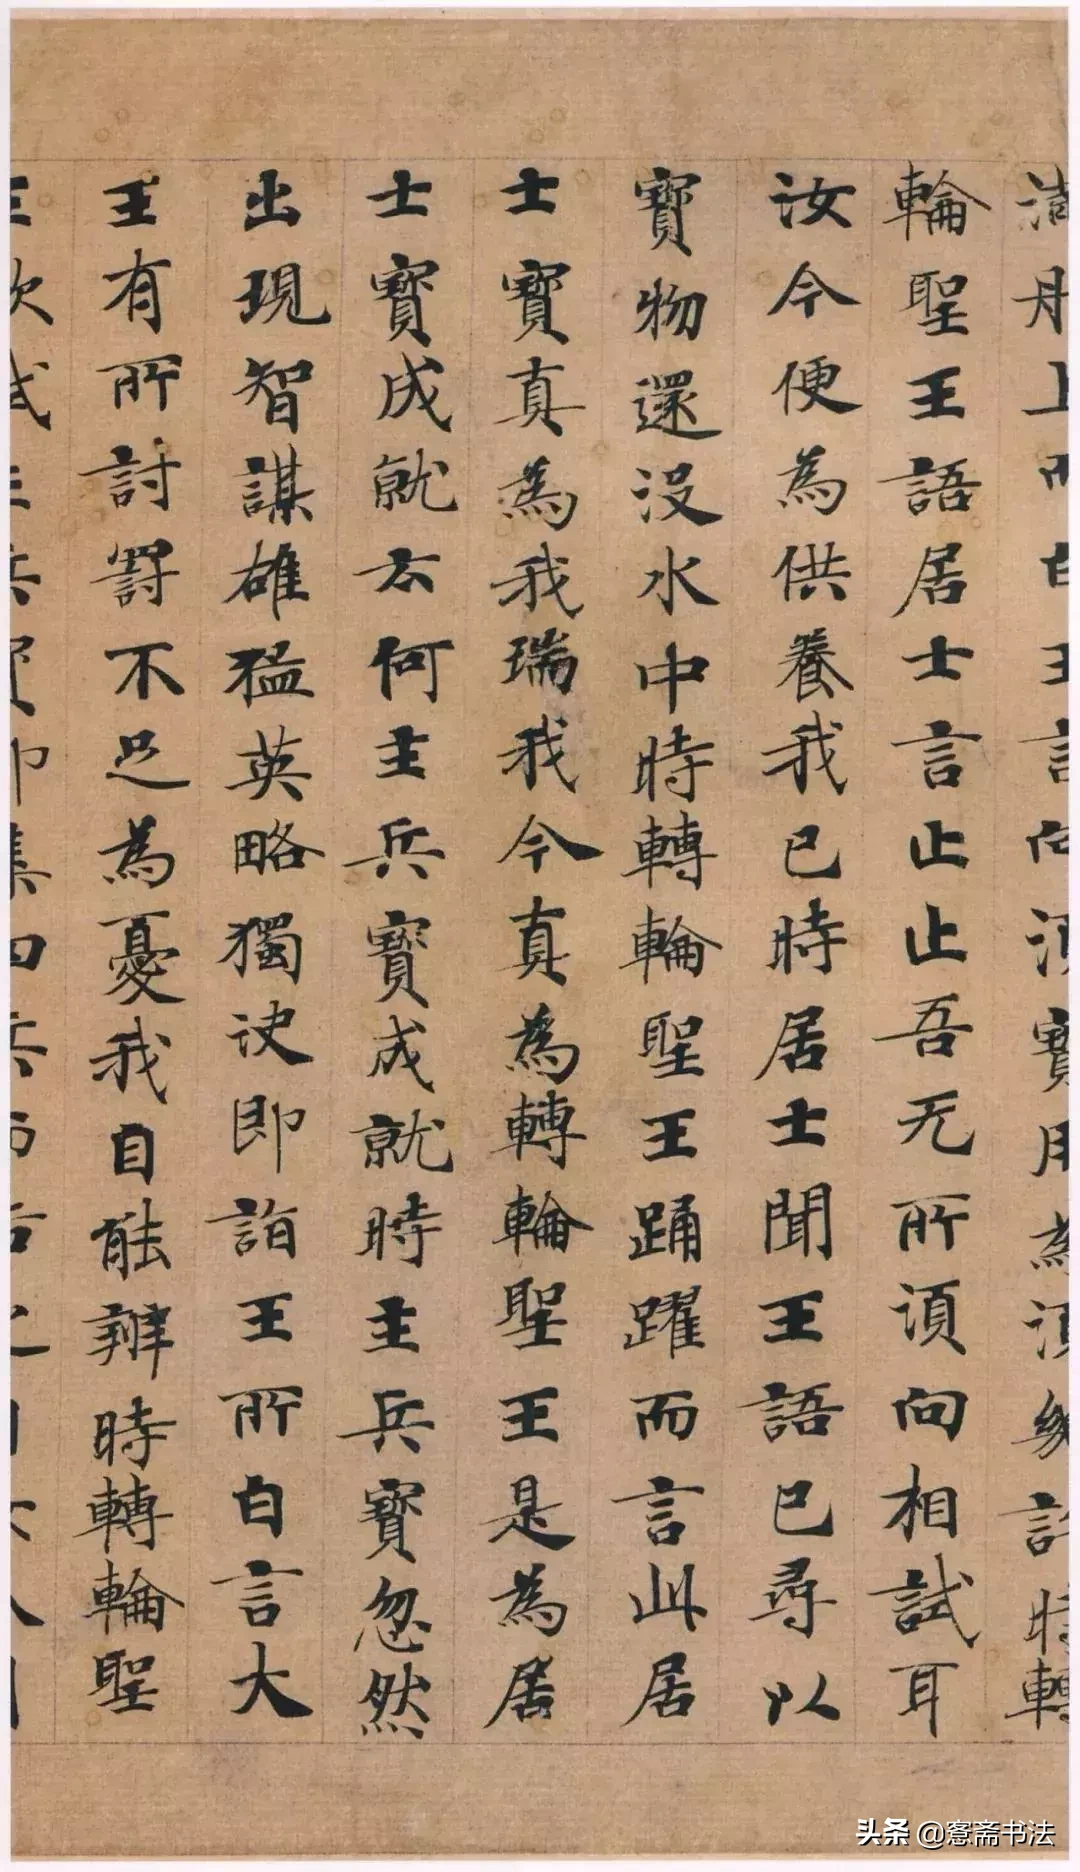 上而白王言向須寶用為須幾許時轉
輪聖王語居士言止止吾无所須向相試耳
汝今便為供養我已時居士聞王語已尋以
寶物還沒水中時轉輪聖王踊躍而言此居
士寶真為我瑞我今真為轉輪聖王是為居
士寶成就云何主兵寶成就時主兵寶忽然
出現智謀雄猛英略獨决即詣王所白言大
王有所討罰不足為憂我自能辦時轉輪聖
王欲試主兵寶即集四兵而告之
头条 @愙斋书法